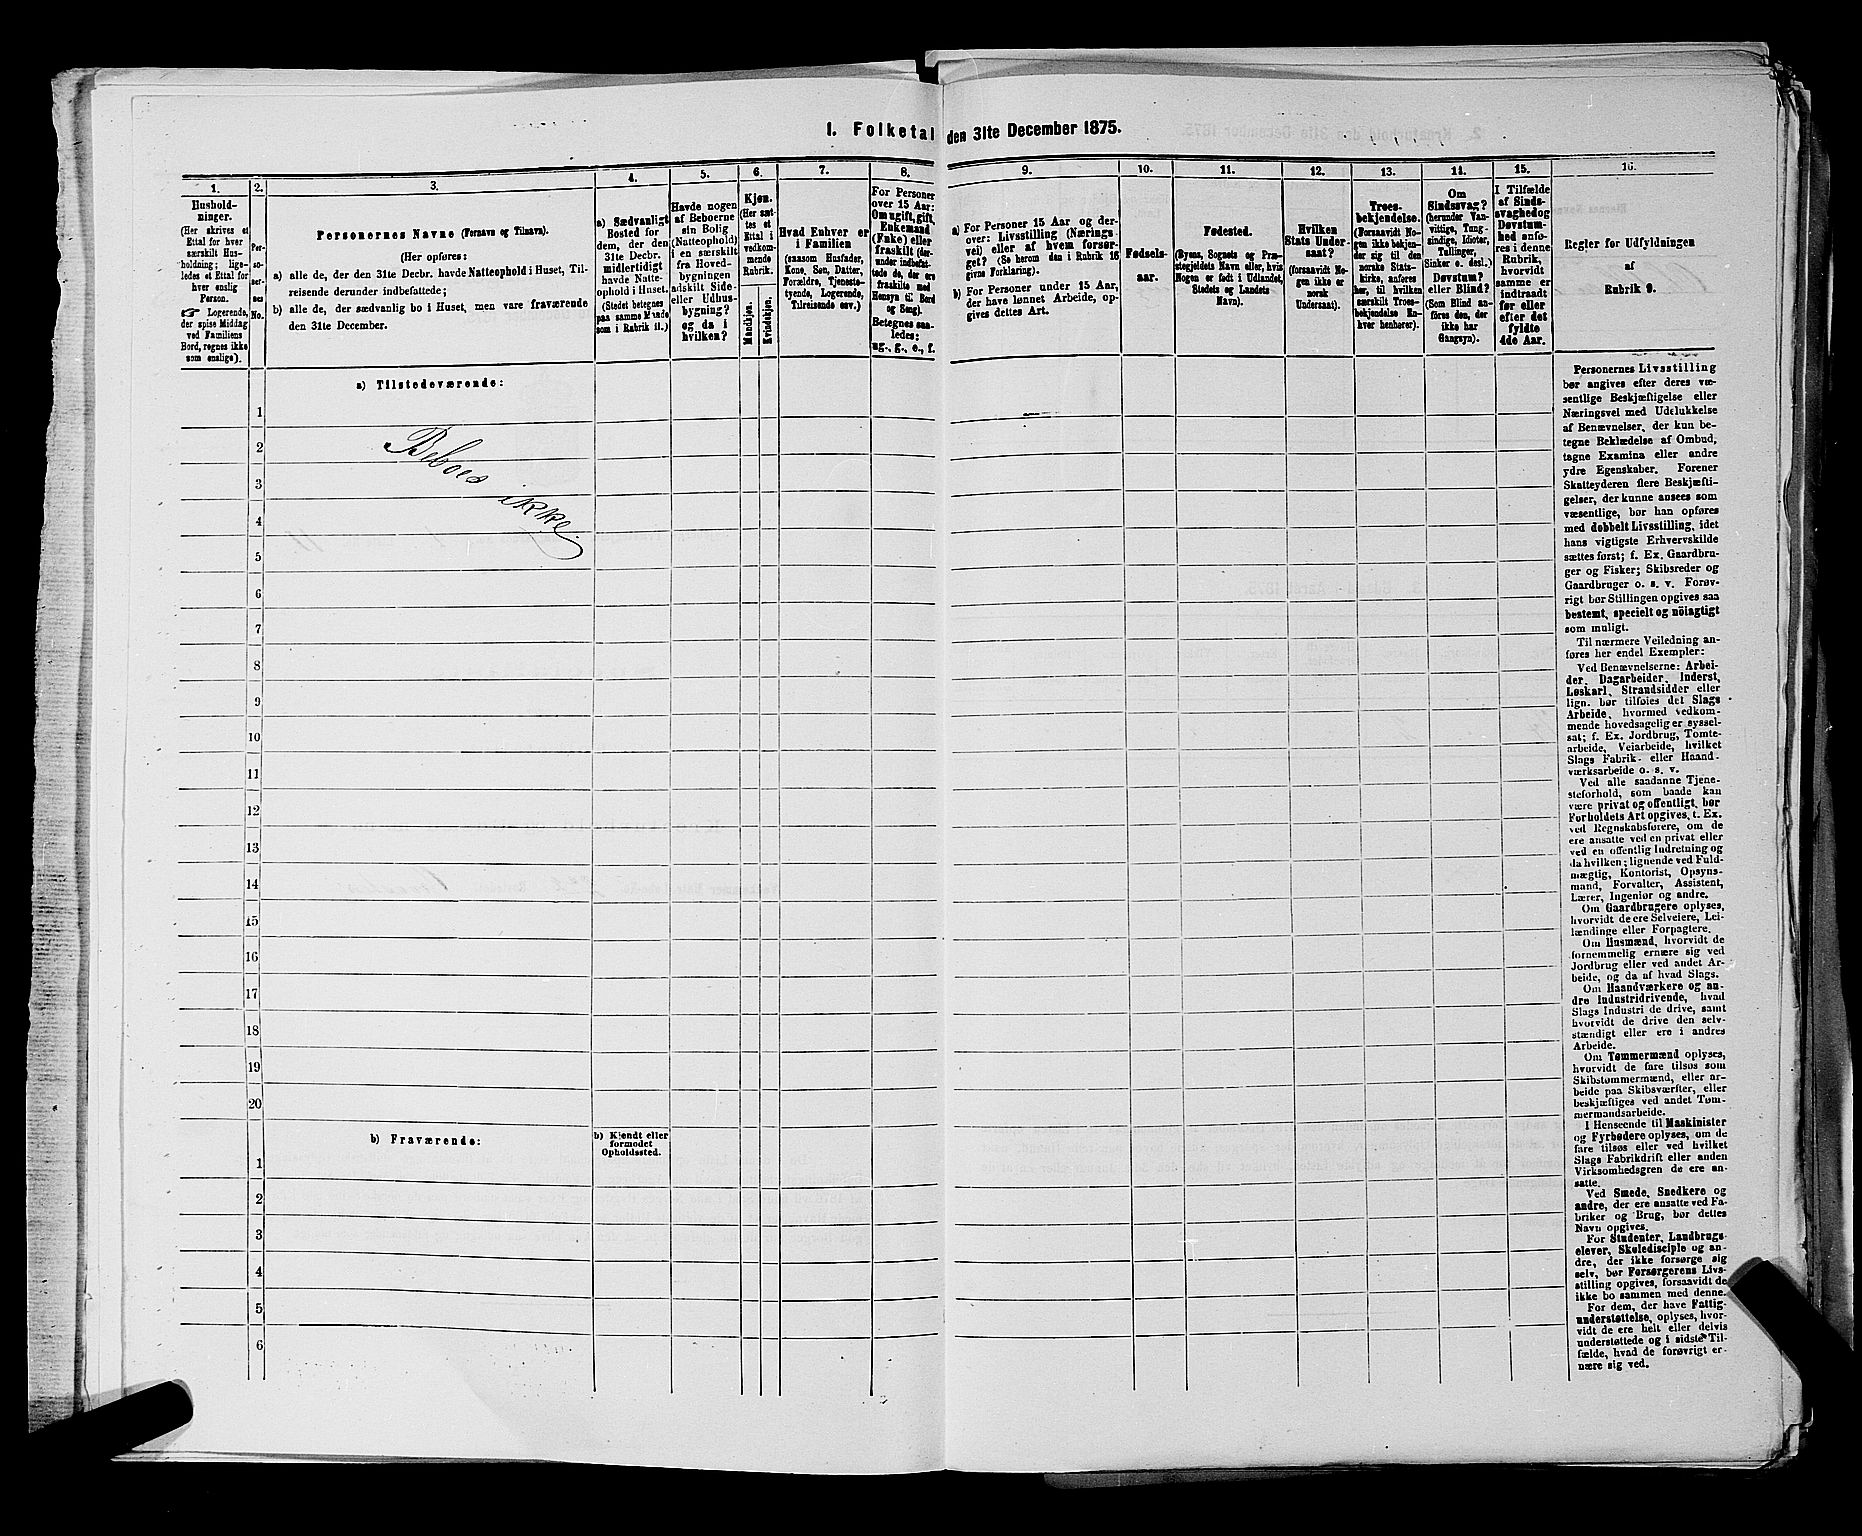 1. Folketal den 31te December 1875.
1.
2.
3.
4.
5.
6.
7.
8.
9.
10.
11.
12.
13.
14.
15.
16.
Hushold-
ninger.
(Her skrives et
Ettal for hver
særskilt Hus-
holdning; lige-
ledes et Ettal for
hver enslig
Person.
☞ Logerende,
der spise Middag
ved Familiens
Bord, regnes ikke
som enslige).
Per-
so-
ner-
nes
No.
Personernes Navne (Fornavn og Tilnavn).
(Her opføres:
a) alle de, der den 31te Decbr. havde Natteophold i Huset, Til-
reisende derunder indbefattede;
b) alle de, der sædvanlig bo i Huset, men vare fraværende
den 31te December.
a) Sædvanligt
Bosted for
dem, der den
31te Decbr.
midlertidigt
havde Natte-
ophold i Huset.
(Stedet betegnes
paa samme Maade
som i Rubrik 11.)
Havde nogen
af Beboerne
sin Bolig
(Natteophold)
i en særskilt
fra Hoved-
bygningen
adskilt Side-
eller Udhus-
bygning?
og da i
hvilken?
Kjøn.
(Her sæt-
tes et
Ettal i
vedkom-
mende
Rubrik.
Mandkjøn.
Kvindekjøn.
Hvad Enhver er
i Familien
(saasom Husfader,
Kone, Søn, Datter,
Forældre, Tjeneste-
tyende, Logerende,
Tilreisende osv.)
For Personer
over 15 Aar:
Om ugift, gift,
Enkemand
(Enke) eller
fraskilt (der-
under indbefat-
tede de, der ere
fraskilte med
Hensyn til Bord
og Seng).
Betegnes saa-
ledes:
ug., g., e., f.
a) For Personer 15 Aar og der-
over: Livsstilling (Nærings-
vei) eller af hvem forsør-
get? (Se herom den i Rubrik 16
givne Forklaring).
b) For Personer under 15 Aar,
der have lønnet Arbeide, op-
gives dettes Art.
Fødsels-
aar.
Fødested.
(Byens, Sognets og Præ-
stegjeldets Navn eller, hvis
Nogen er født i Udlandet,
Stedets og Landets
Navn).
Hvilken
Stats Under-
saat?
(forsaavidt No-
gen ikke er
norsk
Undersaat).
Troes-
bekjendelse.
(Forsaavidt No-
gen ikke bekjen-
der sig til den
norske Stats-
kirke, anføres
her, til hvilken
særskilt Troes-
bekjendelse En-
hver henhører).
Om
Sindssvag?
(herunder Van-
vittige, Tung-
sindige, Idioter,
Tullinger,
Sinker o. desl.)
Døvstum?
eller Blind?
(Som Blind an-
føres den, der
ikke har
Gangsyn).
I Tilfælde
af Sinds-
svaghed og
Døvstum-
hed anfø-
res i denne
Rubrik,
hvorvidt
samme er
indtraadt
før eller
efter det
fyldte
4de Aar.
Regler for Udfyldningen
af
Rubrik 9.
a) Tilstedeværende:
1
2
Beboes ikke
3
4
5
6
7
8
9
10
11
12
13
14
15
16
17
18
19
20
b) Fraværende:
b) Kjendt eller
formodet
Opholdssted.
1
2
3
4
5
6
Personernes Livsstilling
bør angives efter deres væ-
sentlige Beskjæftigelse eller
Næringsvei med Udelukkelse
af Benævnelser, der kun be-
tegne Beklædelse af Ombud,
tagne Examina eller andre
ydre Egenskaber. Forener
Skatteyderen flere Beskjæfti-
gelser, der kunne ansees som
væsentlige, bør han opføres
med dobbelt Livsstilling, idet
hans vigtigste Erhvervskilde
sættes først; f. Ex. Gaardbru-
ger og Fisker; Skibsreder og
Gaardbruger o. s. v. Forøv-
rigt bør Stillingen opgives saa
bestemt, specielt og nöiagtigt
som muligt.
Til nærmere Veiledning an-
føres her endel Exempler:
Ved Benævnelserne: Arbei-
der, Dagarbeider, Inderst,
Løskarl, Strandsidder eller
lign. bør tilføies det Slags
Arbeide, hvormed vedkom-
mende hovedsagelig er syssel-
sat; f. Ex. Jordbrug, Tomte-
arbeide, Veiarbeide, hvilket
Slags Fabrik- eller Haand-
værksarbeide o. s. v.
Ved alle saadanne Tjene-
steforhold, som baade kan
være privat og offentligt, bør
Forholdets Art opgives, t. Ex.
ved Regnskabsførere, om de
ere ansatte ved en privat eller
ved en offentlig Indretning og
da hvilken; lignende ved Fuld-
mægtig, Kontorist, Opsyns-
mand, Forvalter, Assistent,
Lærer, Ingeniør og andre.
Om Gaardbrugere oplyses,
hvorvidt de ere Selveiere, Lei-
lændinge eller Forpagtere.
Om Husmænd, hvorvidt de
fornemmelig ernære sig ved
Jordbrug eller ved andet Ar-
beide, og da af hvad Slags.
Om Haandværkere og an-
dre Industridrivende, hvad
Slags Industri de drive, samt
hvorvidt de drive den selv-
stændigt eller ere i andres
Arbeide.
Om Tømmermænd oplyses,
hvorvidt de fare tilsøs som
Skibstømmermænd, eller ar-
beide paa Skibsværfter, eller
beskjæftiges ved andet Tøm-
mermandsarbeide.
I Henseende til Maskinister
og Fyrbødere oplyses, om de
fare tilsøs eller ved hvilket
Slags Fabrikdrift eller anden
Virksomhedsgren de ere an-
satte.
Ved Smede, Snedkere og
andre, der ere ansatte ved Fa-
briker og Brug, bør dettes
Navn opgives.
For Studenter, Landbrugs-
elever, Skoledisciple og an-
dre, der ikke forsørge sig
selv, bør Forsørgerens Livs-
stilling opgives, forsaavidt de
ikke bo sammen med denne.
For dem, der have Fattig-
understøttelse, oplyses, hvor-
vidt de ere helt eller delvis
understøttede og i sidste Til-
fælde, hvad de forøvrigt er-
nære sig ved.